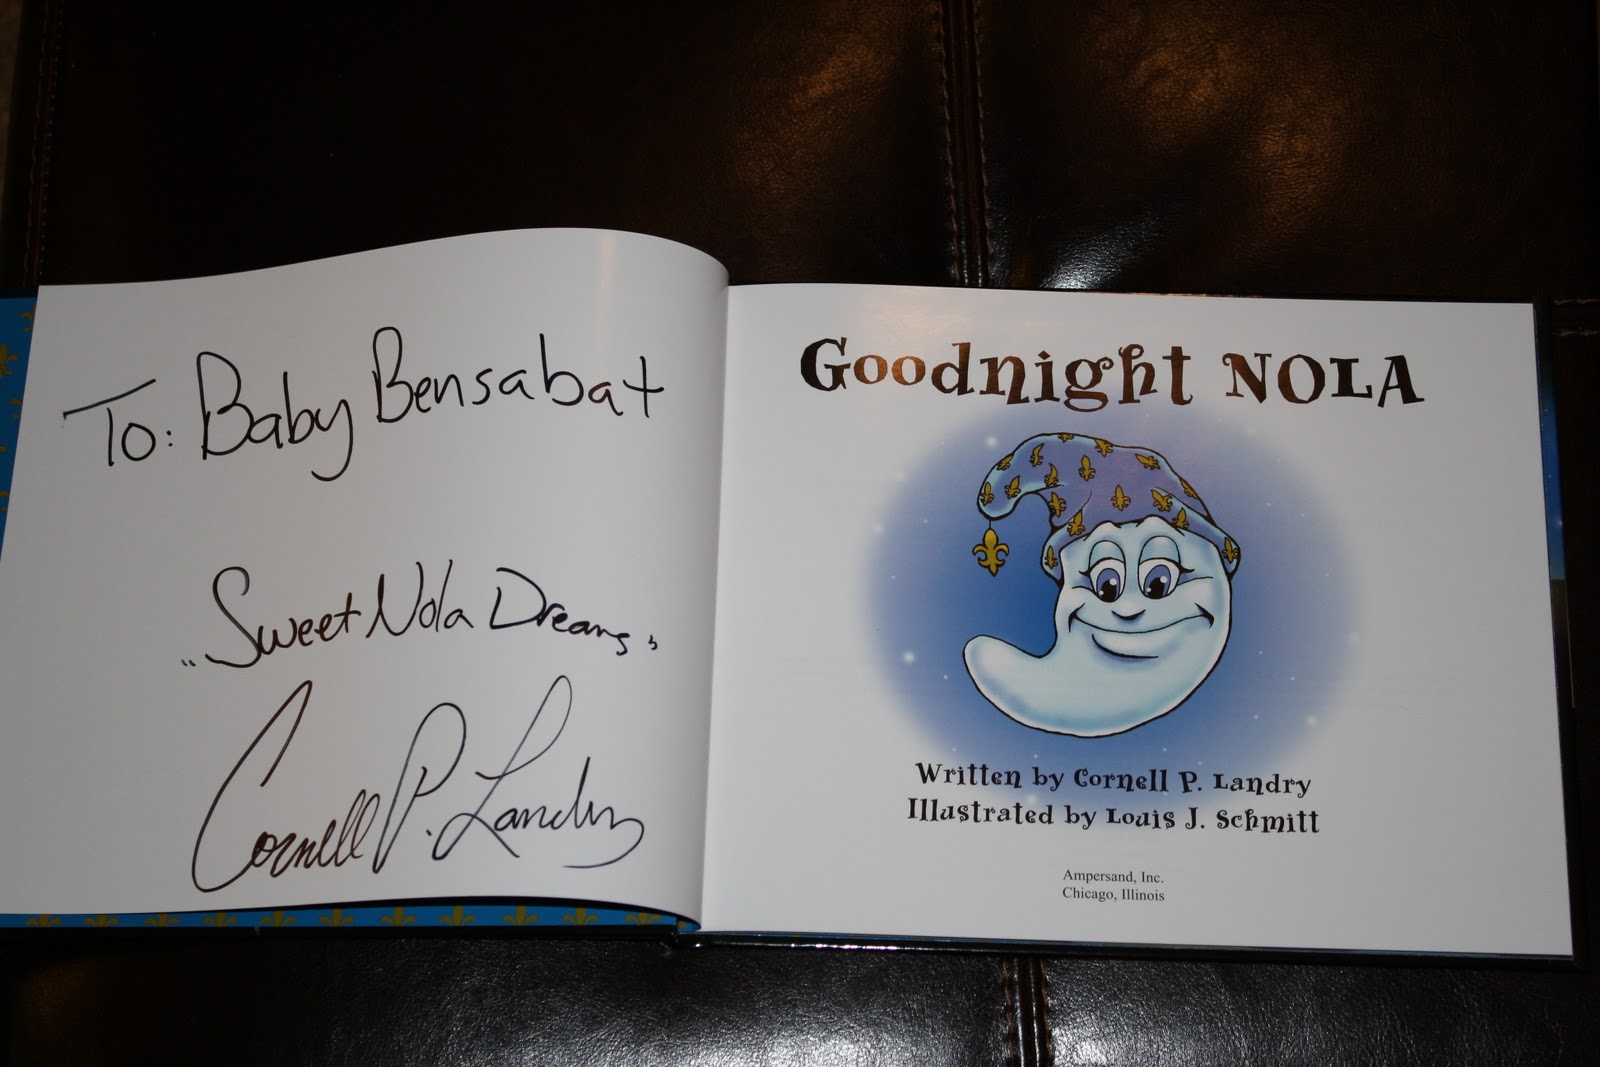 To: Baby Bensabat
"Sweet Nola Dreams"
Cornell P. Landry
Goodnight NOLA
Written by Cornell P. Landry
Illustrated by Louis J. Schmitt
Ampersand, Inc.
Chicago, Illinois